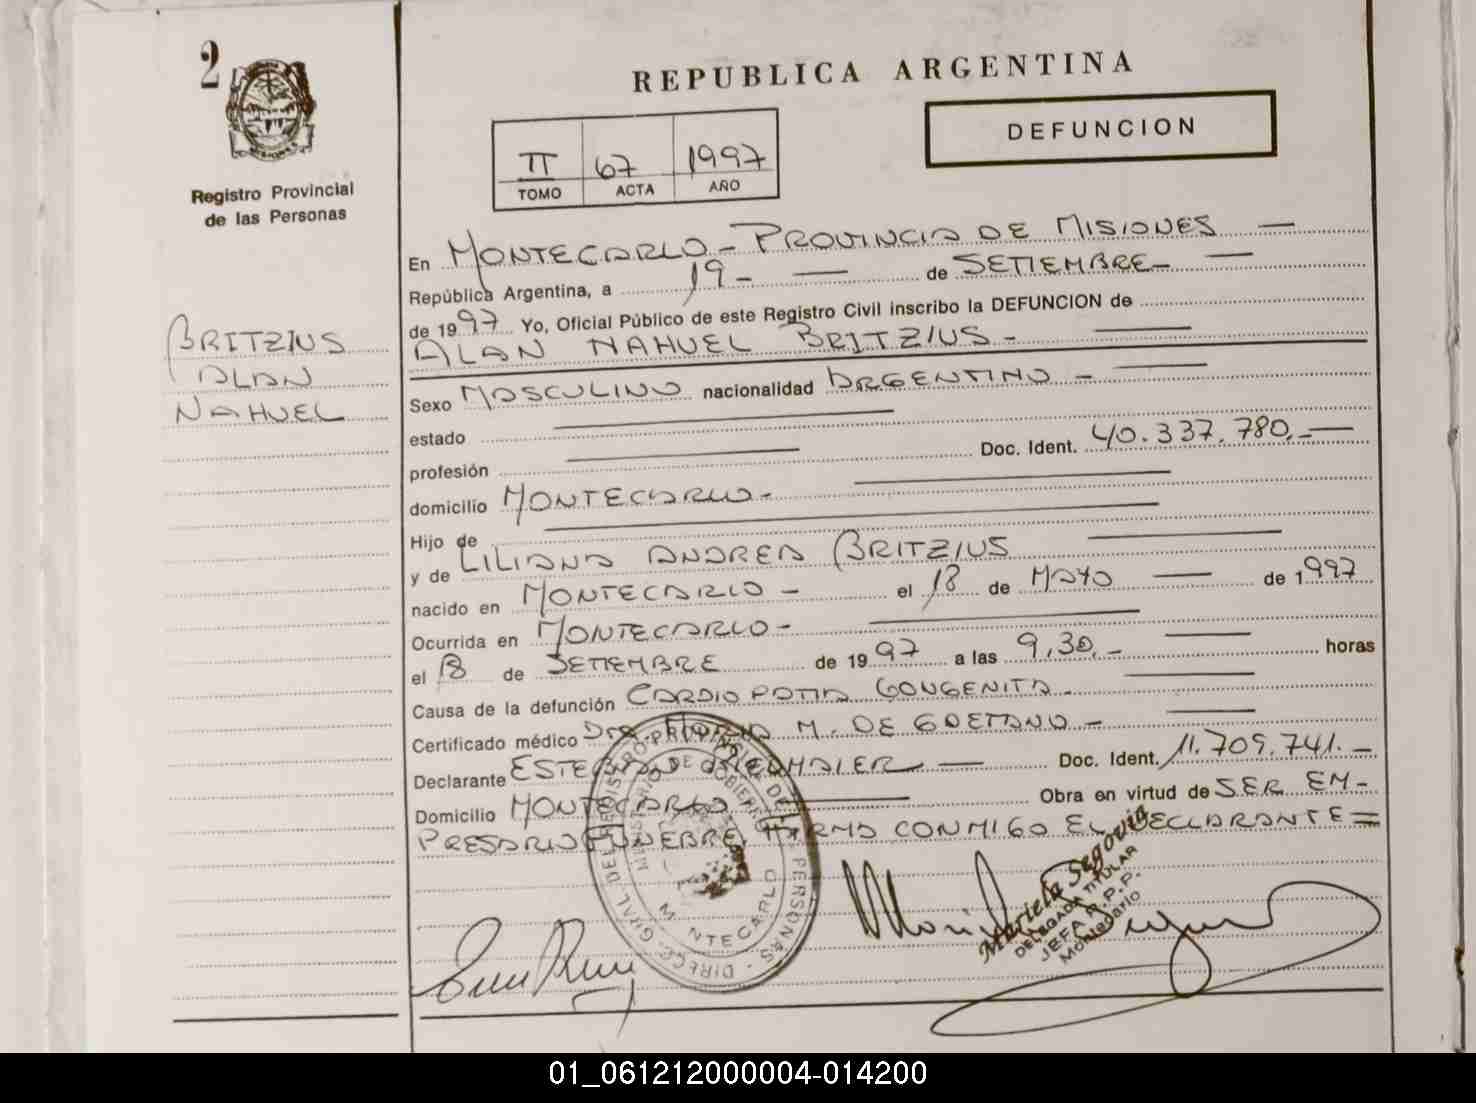 2
REPUBLICA ARGENTINA
DEFUNCION
II 67 1997
TOMO ACTA AÑO
Registro Provincial
de las Personas
BRITZIUS
ALAN
NAHUEL
En MONTECARLO - PROVINCIA DE MISIONES —
República Argentina, a 19 - — de SETIEMBRE - —
de 1997 Yo, Oficial Público de este Registro Civil inscribo la DEFUNCION de
ALAN NAHUEL BRITZIUS -
Sexo MASCULINO nacionalidad ARGENTINO -
estado
profesión Doc. Ident. 40.337.780.-
domicilio MONTECARLO -
Hijo de
y de LILIANA ANDREA BRITZIUS
nacido en MONTECARLO - el 18 de MAYO — de 1997
Ocurrida en MONTECARLO -
el 18 de SETIEMBRE de 1997 a las 9,30.- horas
Causa de la defunción CARDIOPATIA CONGENITA -
Certificado médico Dra. MARIA M. DE GAETANO -
Declarante Doc. Ident. 11.709.741. -
Domicilio MONTECARLO Obra en virtud de SER EM-
PRESARIO FUNEBRE, FIRMA CONMIGO EL DECLARANTE =
DIREC. GRAL. DEL REGISTRO PROVINCIAL DE LAS PERSONAS
MINISTERIO DE GOBIERNO
MONTECARLO
Mariela Segovia
DELEGADA TITULAR
JEFA R.P.P.
Montecarlo
01_061212000004-014200